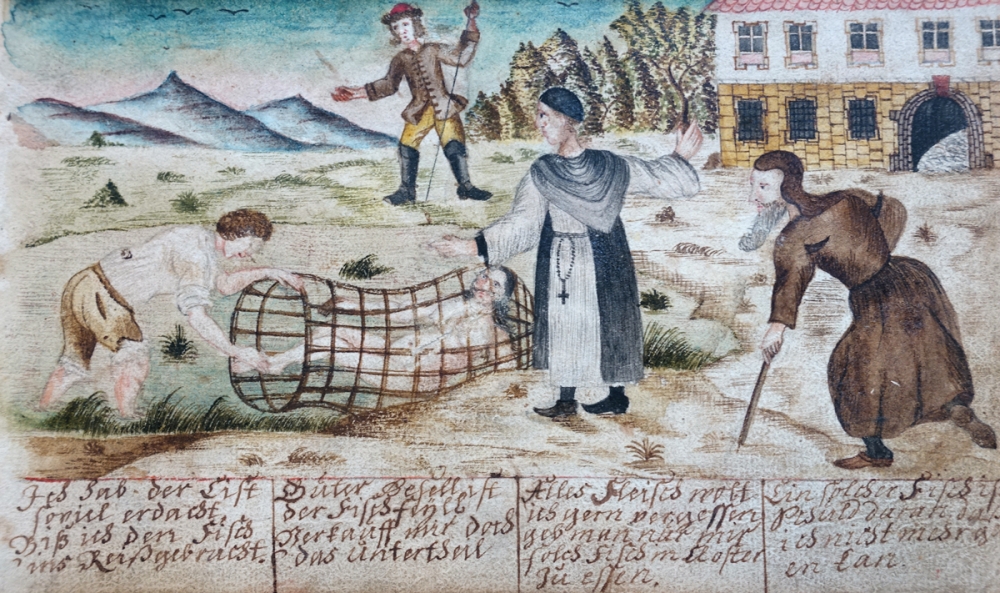 Ich hab der List
soviel erdacht
Biß ich den Fisch
ins Reißgebracht.
Guter Gesell ist
der Fisch feyl
Verkauff mir doch
das Untertheil
Alles Fleisch wolt
ich gern vergessen
geb man nur mir
solch Fisch im Closter
Zu essen.
Ein solcher Fisch is
Schuld daran da
ich nicht mehr g
en kan.